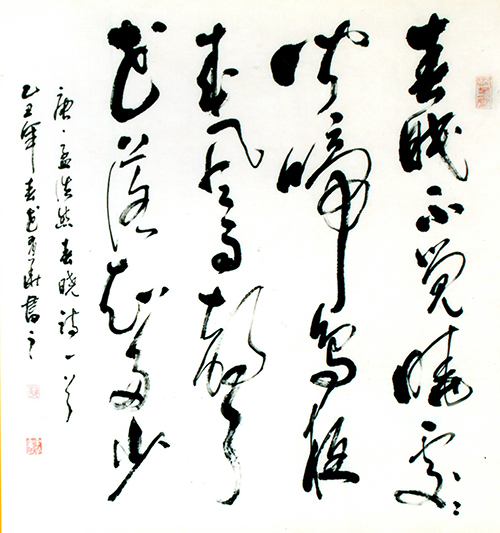 春眠不觉晓处〻
闻啼鸟夜
来风雨聲
花落知多少
唐·孟浩然春晓诗一首
乙丑年春書之